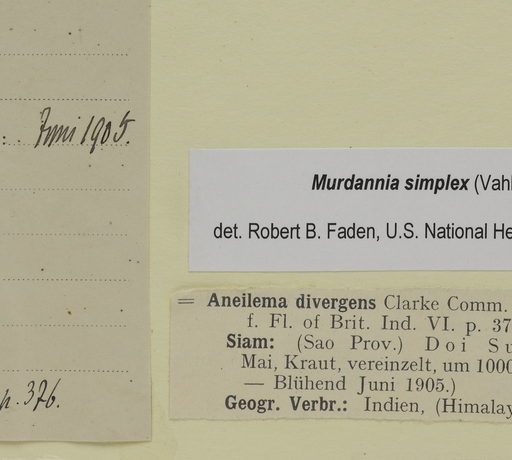 : Juni 1905.
p. 376.
Murdannia simplex (Vahl
det. Robert B. Faden, U.S. National He
= Aneilema divergens Clarke Comm.
f. Fl. of Brit. Ind. VI. p. 37
Siam: (Sao Prov.) Doi Su
Mai, Kraut, vereinzelt, um 1000
— Blühend Juni 1905.)
Geogr. Verbr.: Indien, (Himalay